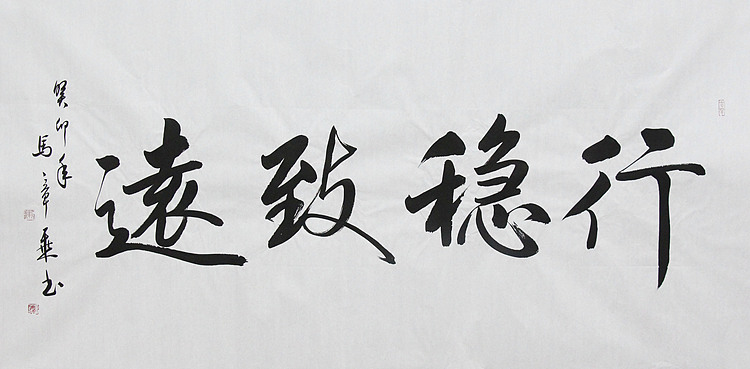 行稳致遠
癸卯年
馬章乘书